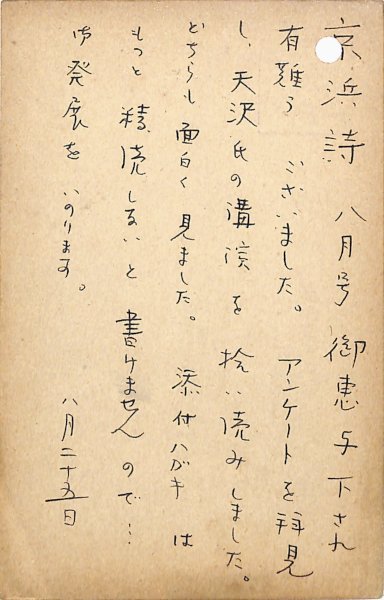 京浜詩 八月号 御恵与下され
有難う ございました。 アンケートを拝見
し、天沢氏の講演を拾い読みしました。
どちらも面白く見ました。 添付ハガキは
もっと精読しないと 書けませんので…
御発展をいのります。
八月二十五日